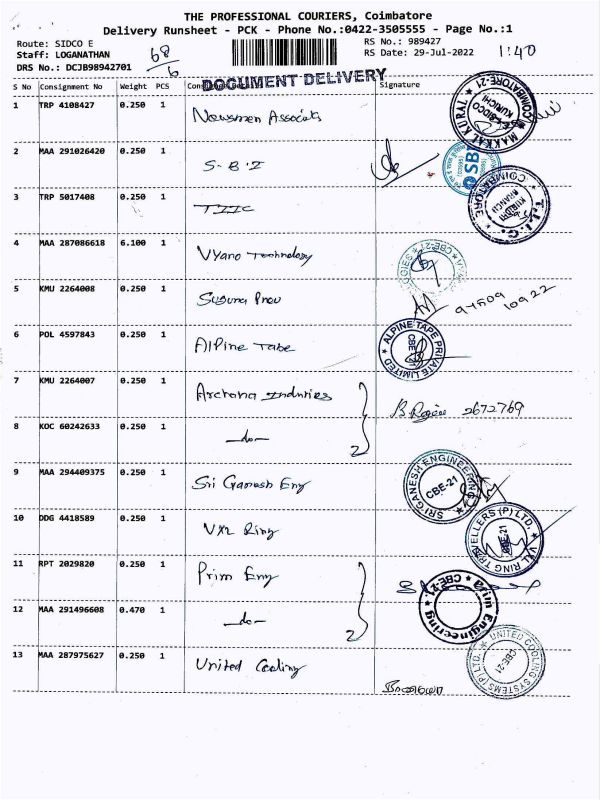 THE PROFESSIONAL COURIERS, Coimbatore
Delivery Runsheet - PCK - Phone No.:0422-3505555 - Page No.:1
Route: SIDCO E 68/6 RS No.: 989427 1:40
Staff: LOGANATHAN RS Date: 29-Jul-2022
DRS No.: DCJB98942701
DOCUMENT DELIVERY
S No Consignment No Weight PCS Signature
1 TRP 4108427 0.250 1 Newsmen Associats
MAKKAL KURAL COIMBATORE-21 SIDCO KURICHI
2 MAA 291026420 0.250 1 S.B.I
SBI
3 TRP 5017408 0.250 1 TIIC
T.I.I.C. COIMBATORE BRANCH
4 MAA 287086618 6.100 1 Vyano Technology
CBE-21
5 KMU 2264008 0.250 1 Suguna
6 POL 4597843 0.250 1 Alpine Tape
ALPINE TAPE PRIVATE LIMITED CBE-21
7 KMU 2264007 0.250 1 Archana Industries
2672769
8 KOC 60242633 0.250 1 -do- 2
9 MAA 294409375 0.250 1 Sri Ganesh Eng
SRI GANESH ENGINEERING CBE-21
10 DDG 4418589 0.250 1 VXL Ring
VXL RING TRAVELLERS (P) LTD. CBE-21
11 RPT 2029820 0.250 1 Prim Eng
12 MAA 291496608 0.470 1 -do- 2
Prim Engineering CBE-21
13 MAA 287975627 0.250 1 United Cooling
UNITED COOLING SYSTEMS (P) LTD. CBE-21